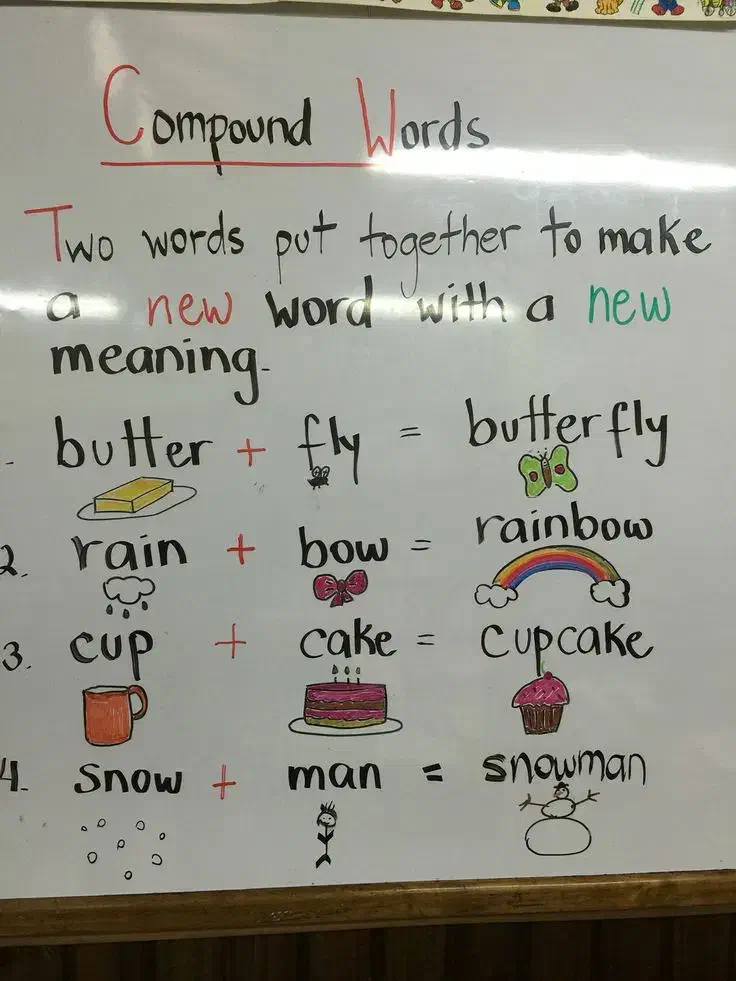 Compound Words
Two words put together to make
a new word with a new
meaning.
- butter + fly = butterfly
2. rain + bow = rainbow
3. cup + cake = cupcake
4. snow + man = snowman